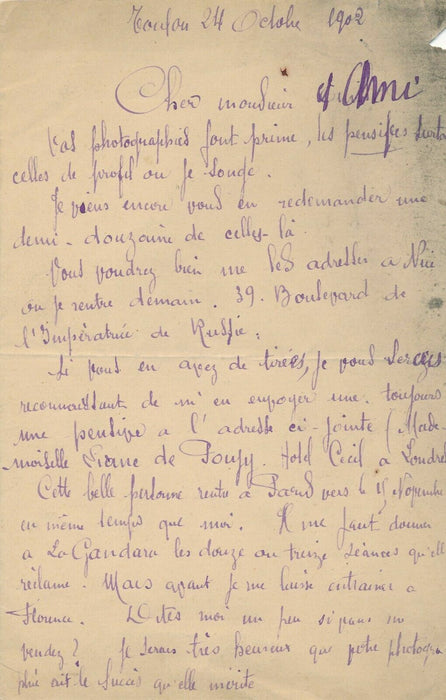 Toulon 24 Octobre 1902
Cher monsieur et Ami
Vos photographies font prime, les pensives surtout
celles de profil ou je songe.
Je viens encore vous en redemander une
demi-douzaine de celles-là.
Vous voudrez bien me les adresser a Nice
ou je rentre demain. 39. Boulevard de
l'Impératrice de Russie.
Si vous en avez de tirées, je vous serais
reconnaissant de m'en envoyer une. toujours
une pensive a l'adresse ci-jointe (Made-
moiselle Liane de Pougy. Hotel Cecil a Londres
Cette belle personne rentre a Paris vers le 15 Novembre
en même temps que moi. Il me faut donner
a La Gandara les douze ou treize séances qu'elle
réclame. Mais avant je me laisse entrainer a
Florence. Dites moi un peu si vous en
vendez? Je serais très heureux que votre photogra-
phie eait le succès qu'elle mérite